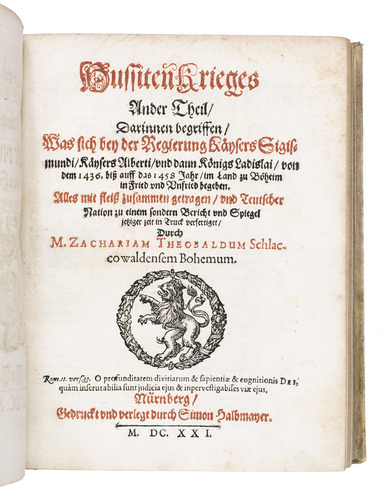 Hussiten Krieges
Ander Theil/
Darinnen begriffen/
Was sich bey der Regierung Käysers Sigis-
mundi/ Käysers Alberti/ vnd dann Königs Ladislai/ von
dem 1436. biß auff das 1458 Jahr/ im Land zu Böheim
in Fried vnd Vnfried begeben.
Alles mit fleiß zusammen getragen/ vnd Teutscher
Nation zu einem sondern Bericht vnd Spiegel
jetziger zeit in Truck verfertiget/
Durch
M. ZACHARIAM THEOBALDUM Schlac-
cowaldensem Bohemum.
Rom. 11. vers. 33. O profunditatem divitiarum & sapientiæ & cognitionis DEI,
quàm inscrutabilia sunt judicia ejus & inpervestigabiles viæ ejus.
Nürnberg/
Gedruckt vnd verlegt durch Simon Halbmayer.
M. DC. XXI.